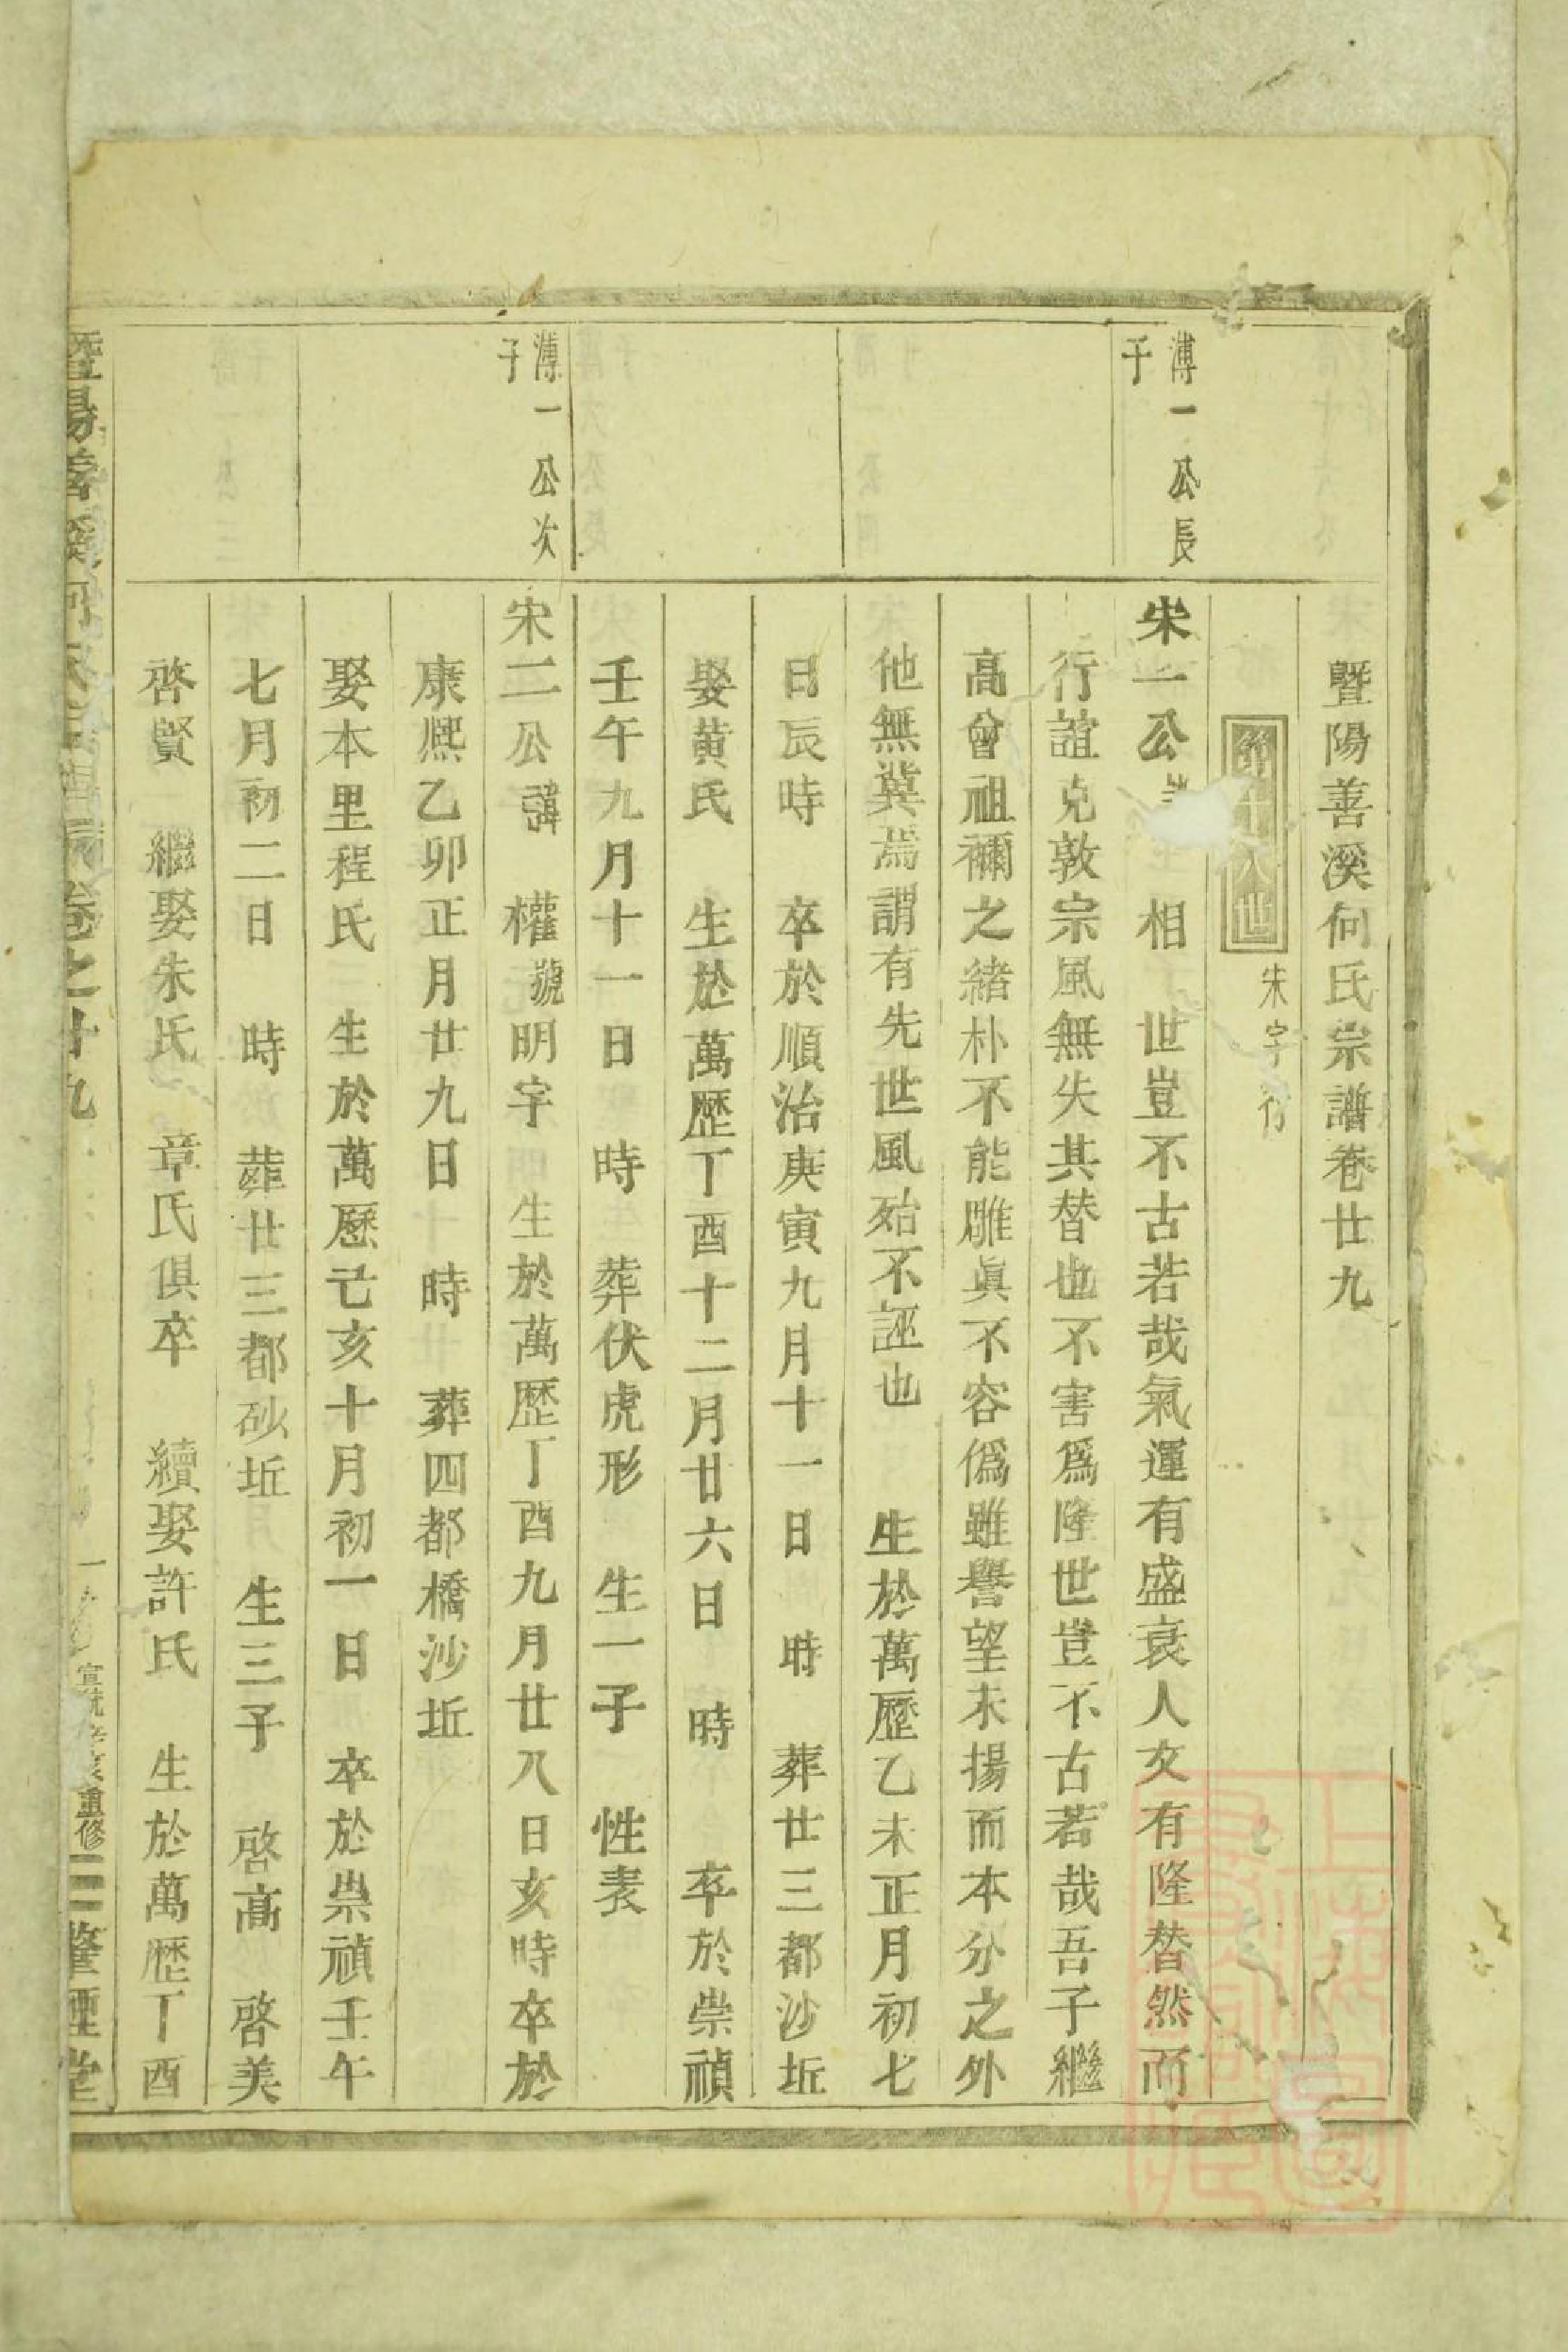 暨陽善溪何氏宗譜卷廿九
第十八世 宋字行
溥一公長子
宋一公 相 世豈不古若哉氣運有盛衰人文有隆替然而
行誼克敦宗風無失其替也不害爲隆世豈不古若哉吾子繼
高曾祖禰之緒朴不能雕眞不容僞雖譽望未揚而本分之外
他無冀焉謂有先世風殆不誣也 生於萬歷乙未正月初七
日辰時 卒於順治庚寅九月十一日 時 葬廿三都沙坵
娶黃氏 生於萬歷丁酉十二月廿六日 時 卒於崇禎
壬午九月十一日 時 葬伏虎形 生一子 性表
溥一公次子
宋二公諱 權號明宇 生於萬歷丁酉九月廿八日亥時卒於
康熙乙卯正月廿九日 時 葬四都橋沙坵
娶本里程氏 生於萬歷己亥十月初一日 卒於崇禎壬午
七月初二日 時 葬廿三都砂坵 生三子 啓高 啓美
啓賢 繼娶朱氏 章氏俱卒 續娶許氏 生於萬歷丁酉
暨陽善溪何氏宗譜 卷之廿九 一 重修 肇禋堂